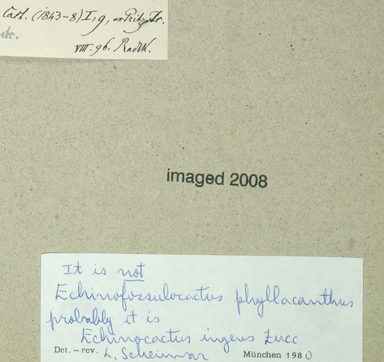 Cart. (1843–8) I, 9,
etc.
VIII. 96. Radlk.
imaged 2008
It is not
Echinofossulocactus phyllacanthus
probably it is
Echinocactus ingens Zucc.
Det. – rev. L. Scheinvar München 1980